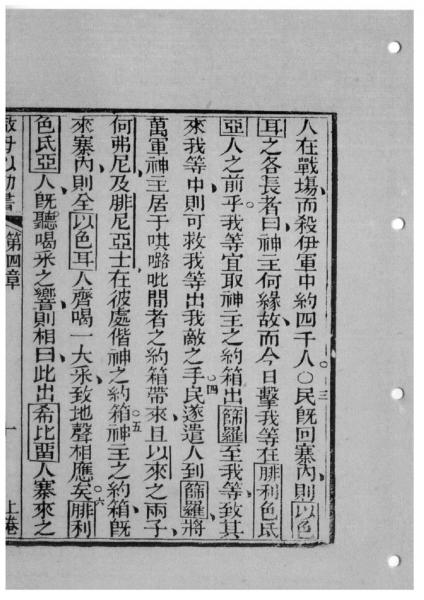 人在戰塲而殺伊軍中約四千人○民旣回寨內則以色
耳之各長者曰神主何緣故而今日擊我等在腓利色氏
亞人之前乎我等宜取神主之約箱出篩羅至我等致其
來我等中則可救我等出我敵之手民遂遣人到篩羅將
萬軍神主居于㖵嚧吡間者之約箱帶來且以來之兩子
何弗尼及腓尼亞士在彼處偕神之約箱神主之約箱旣
來寨內則全以色耳人齊喝一大采致地聲相應矣腓利
色氏亞人旣聽喝采之響則相曰此出希比留人寨來之
母以勒書 第四章 一 上卷
三
四
五
六